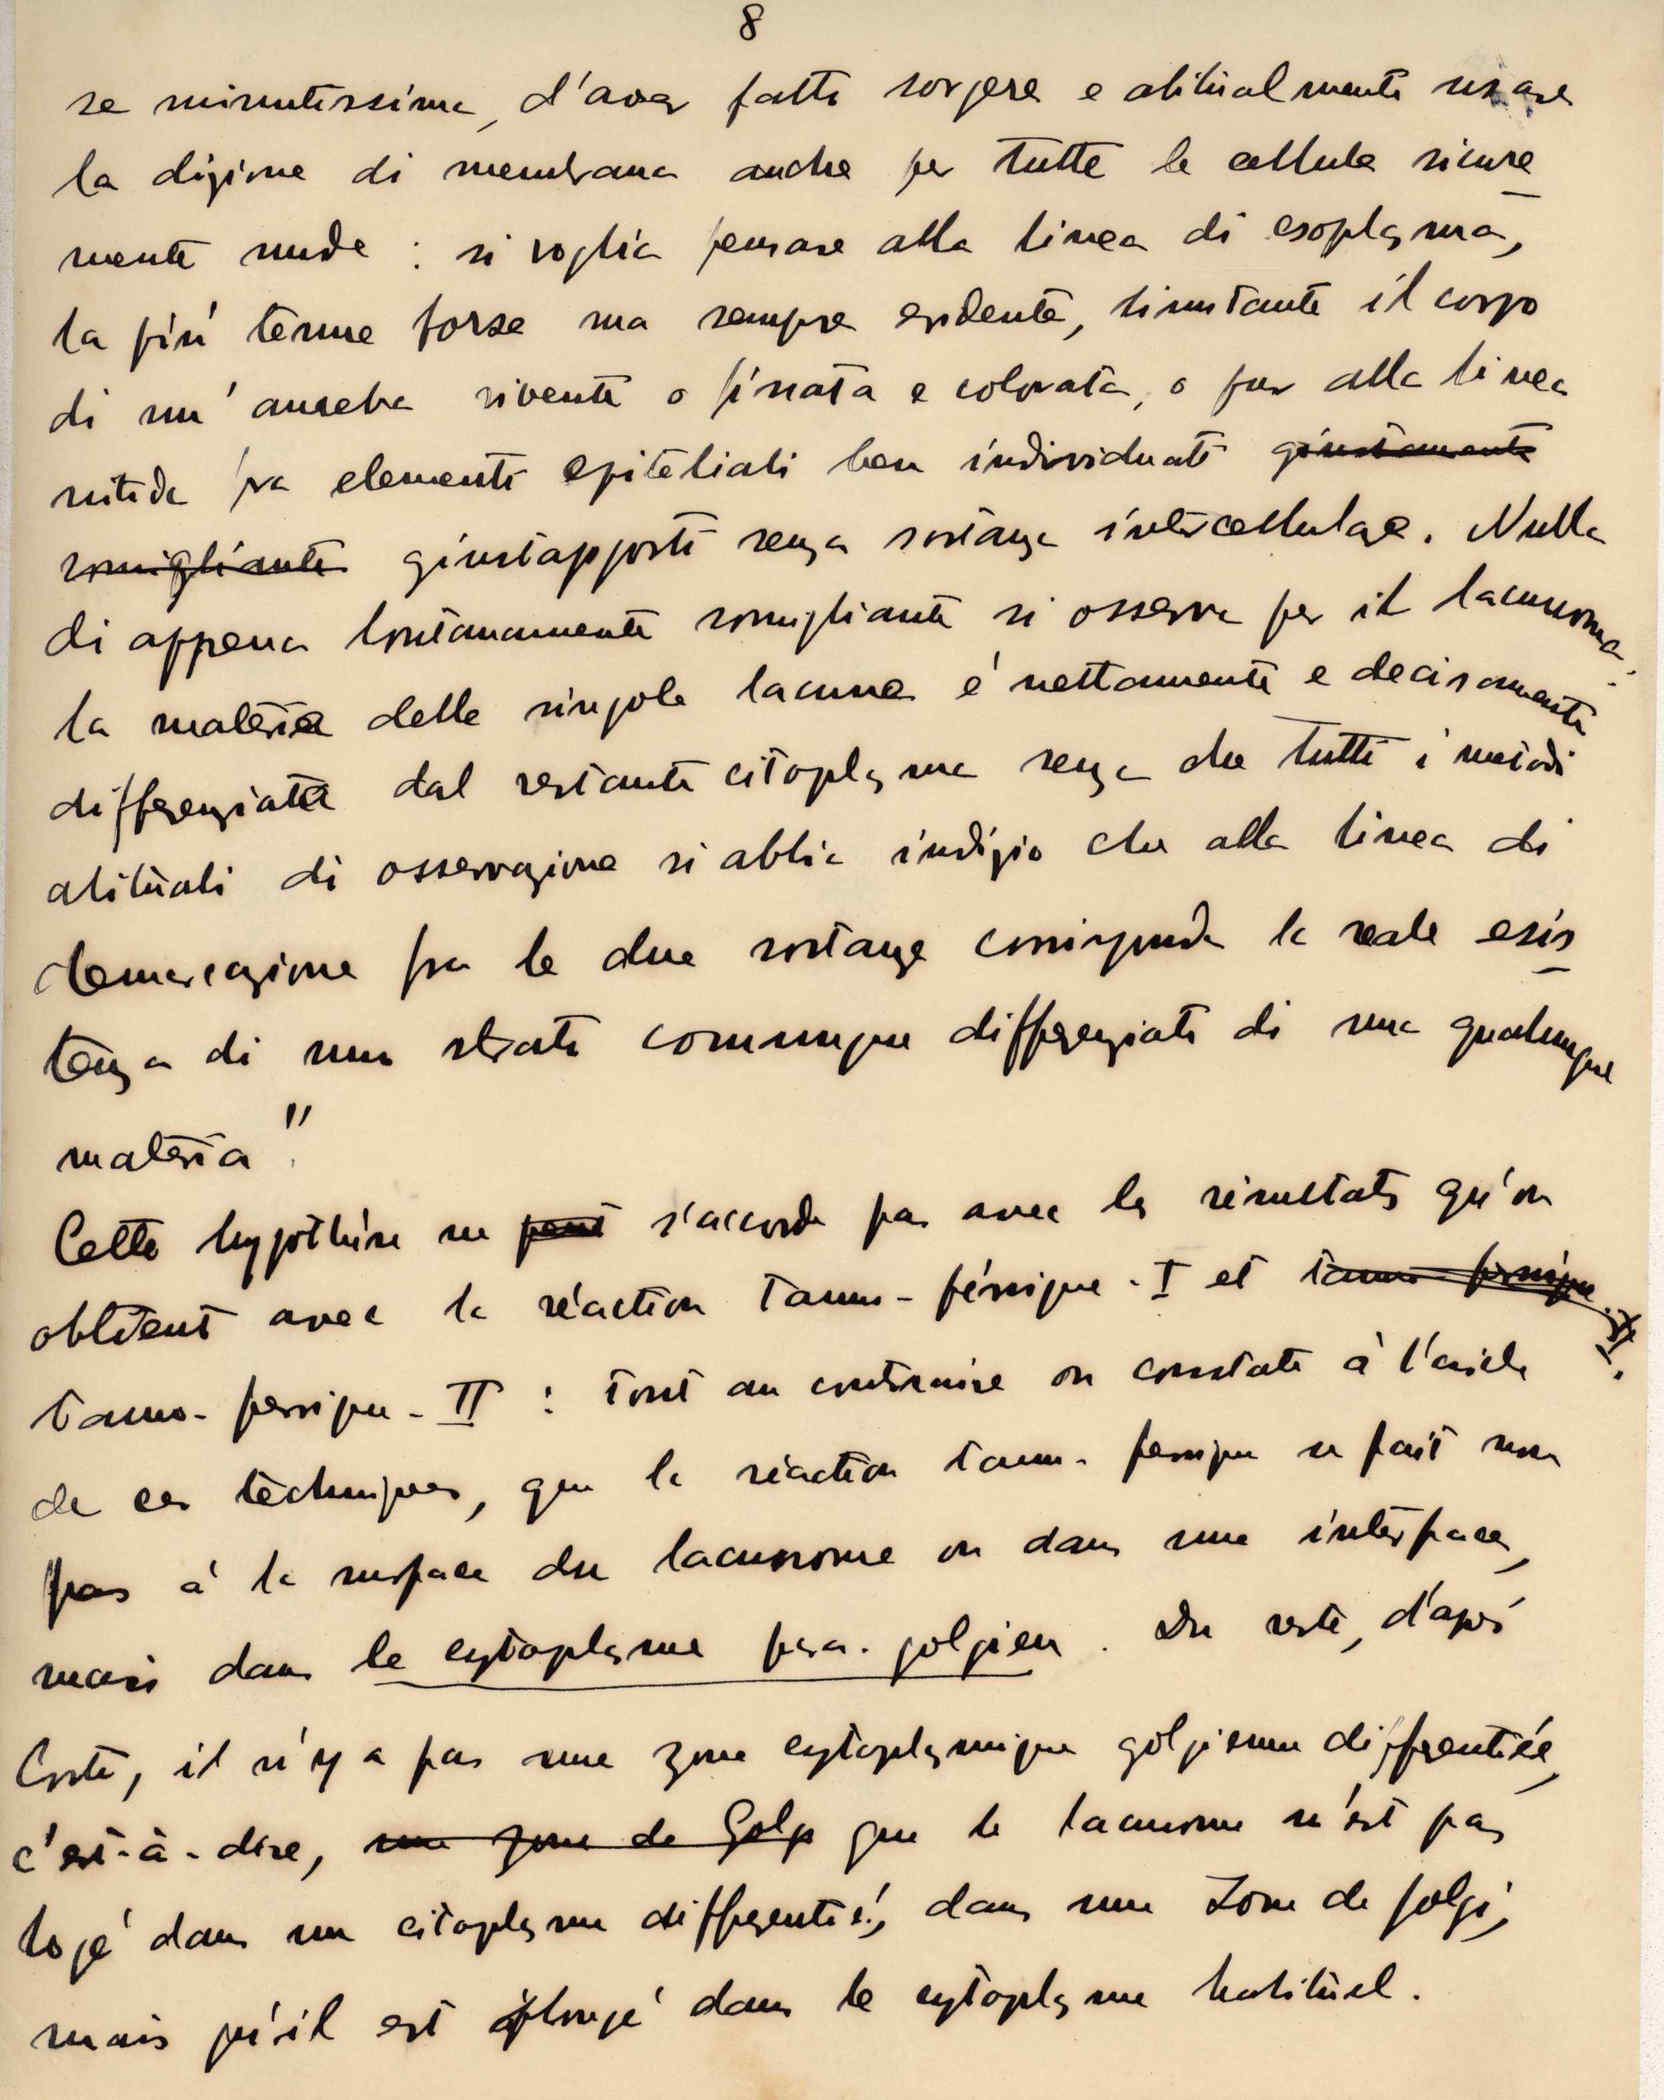 8
se minutissima, d'aver fatto sorgere e abitualmente usare
la dizione di membrana anche per tutte le cellule sicura
mente nude : si voglia pensare alla linea di esoplasma,
la più tenue forse ma sempre evidente, limitante il corpo
di un' ameba vivente o fissata e colorata, o pur alla linea
nitida fra elementi epiteliali ben individuati giustamente
somigliante giustapposti senza sostanza intercellulare. Nulla
di appena lontanamente somigliante si osserva per il lacunoma:
la materia delle singole lacune é nettamente e decisamente
differenziata dal restante citoplasma senza che tutti i metodi
abituali di osservazione si abbia indizio che alla linea di
demarcazione fra le due sostanze corrisponda la reale esis
tenza di uno strato comunque differenziato di una qualunque
materia".
Cette hypothèse ne peut s'accorde pas avec les résultats qu'on
obtient avec la réaction tanno-férrique-I et tanno-ferrique-II.
tanno-ferrique-II : tout au contraire on constate à l'aide
de ces techniques, que la réaction tanno-ferrique se fait non
pas à la surface du lacunome ou dans une interface,
mais dans le cytoplasme para-golgien. Du reste, d'après
Corti, il n'y a pas une zone cytoplasmique golgienne differentiée,
c'est-à-dire, une zone de Golgi que le lacunome n'est pas
logé dans un citoplasme differentié, dans une zone de Golgi,
mais qu'il est plongé dans le cytoplasme habituel.